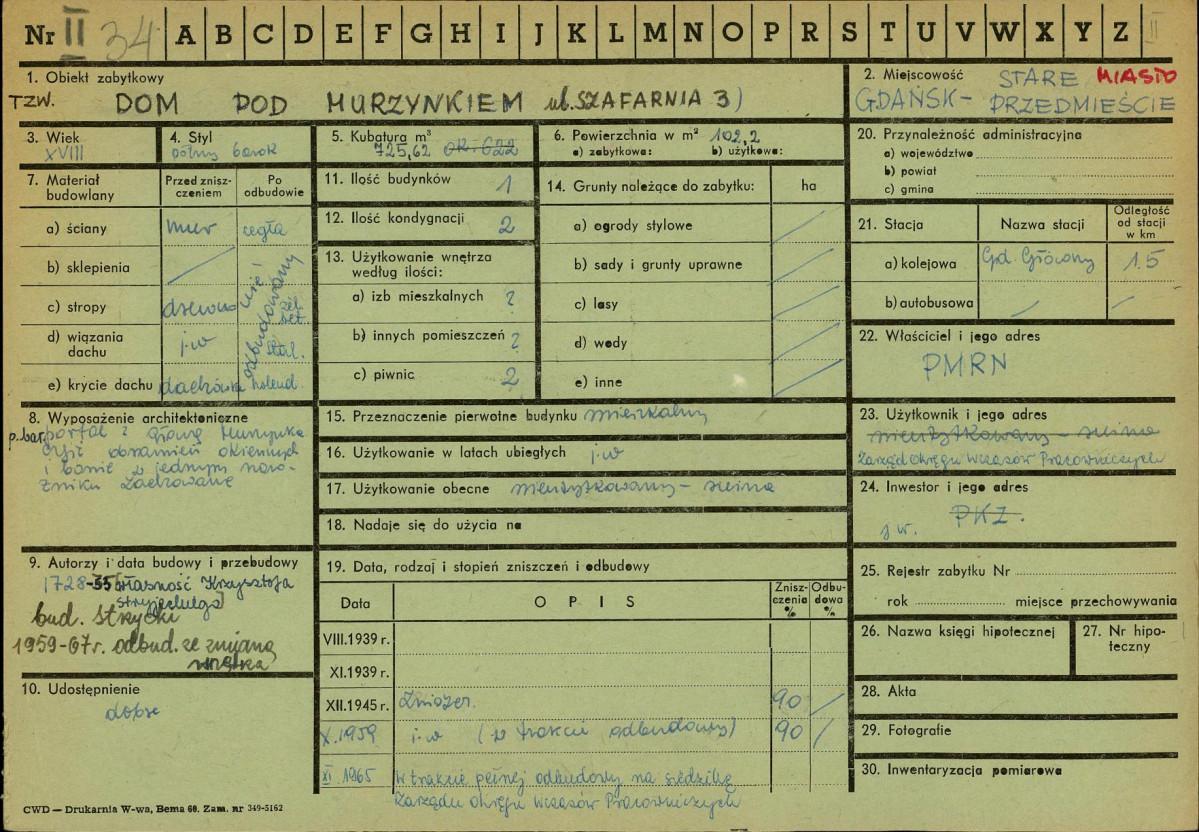 Nr II 34 A B C D E F G H I J K L M N O P R S T U V W X Y Z II
1. Obiekt zabytkowy
TZW. DOM POD MURZYNKIEM ul. SZAFARNIA 3)
2. Miejscowość STARE MIASTO
GDAŃSK - PRZEDMIEŚCIE
3. Wiek
XVIII
4. Styl
późny barok
5. Kubatura m³
725,62 ok. 622
6. Powierzchnia w m² 102,2
a) zabytkowa: b) użytkowa:
7. Materiał budowlany
Przed zniszczeniem
Po odbudowie
a) ściany mur cegła
b) sklepienia
c) stropy drewn żel bet
d) wiązania dachu j.w stal.
e) krycie dachu dachówka holend.
nie odbudowany
8. Wyposażenie architektoniczne
p. bar. portal z głową Murzynka
część obramień okiennych
i bonie w jednym naro-
żniku zachowane
9. Autorzy i data budowy i przebudowy
1728-35 [własność Krzysztofa
bud. Strzycki
1959-67r. odbud. ze zmianą
wnętrza
10. Udostępnienie
dobre
11. Ilość budynków 1
12. Ilość kondygnacji 2
13. Użytkowanie wnętrza
według ilości:
a) izb mieszkalnych ?
b) innych pomieszczeń ?
c) piwnic 2
14. Grunty należące do zabytku: ha
a) ogrody stylowe
b) sady i grunty uprawne
c) lasy
d) wody
e) inne
15. Przeznaczenie pierwotne budynku mieszkalny
16. Użytkowanie w latach ubiegłych j.w
17. Użytkowanie obecne nieużytkowany - ruina
18. Nadaje się do użycia na
19. Data, rodzaj i stopień zniszczeń i odbudowy
Data OPIS Zniszczenia % Odbudowa %
VIII.1939 r.
XI.1939 r.
XII.1945 r. Zniszcz. 90
X.1959 j.w (w trakcie odbudowy) 90
XI 1965 w trakcie pełnej odbudowy na siedzibę
Zarządu Okręgu Wczasów Pracowniczych
20. Przynależność administracyjna
a) województwo
b) powiat
c) gmina
21. Stacja Nazwa stacji Odległość od stacji w km
a) kolejowa Gd. Główny 1.5
b) autobusowa
22. Właściciel i jego adres
PMRN
23. Użytkownik i jego adres
nieużytkowany - ruina
Zarząd Okręgu Wczasów Pracowniczych
24. Inwestor i jego adres
PKZ.
j w.
25. Rejestr zabytku Nr
rok miejsce przechowywania
26. Nazwa księgi hipotecznej
27. Nr hipoteczny
28. Akta
29. Fotografie
30. Inwentaryzacja pomiarowa
CWD — Drukarnia W-wa, Bema 60. Zam. nr 349-5162